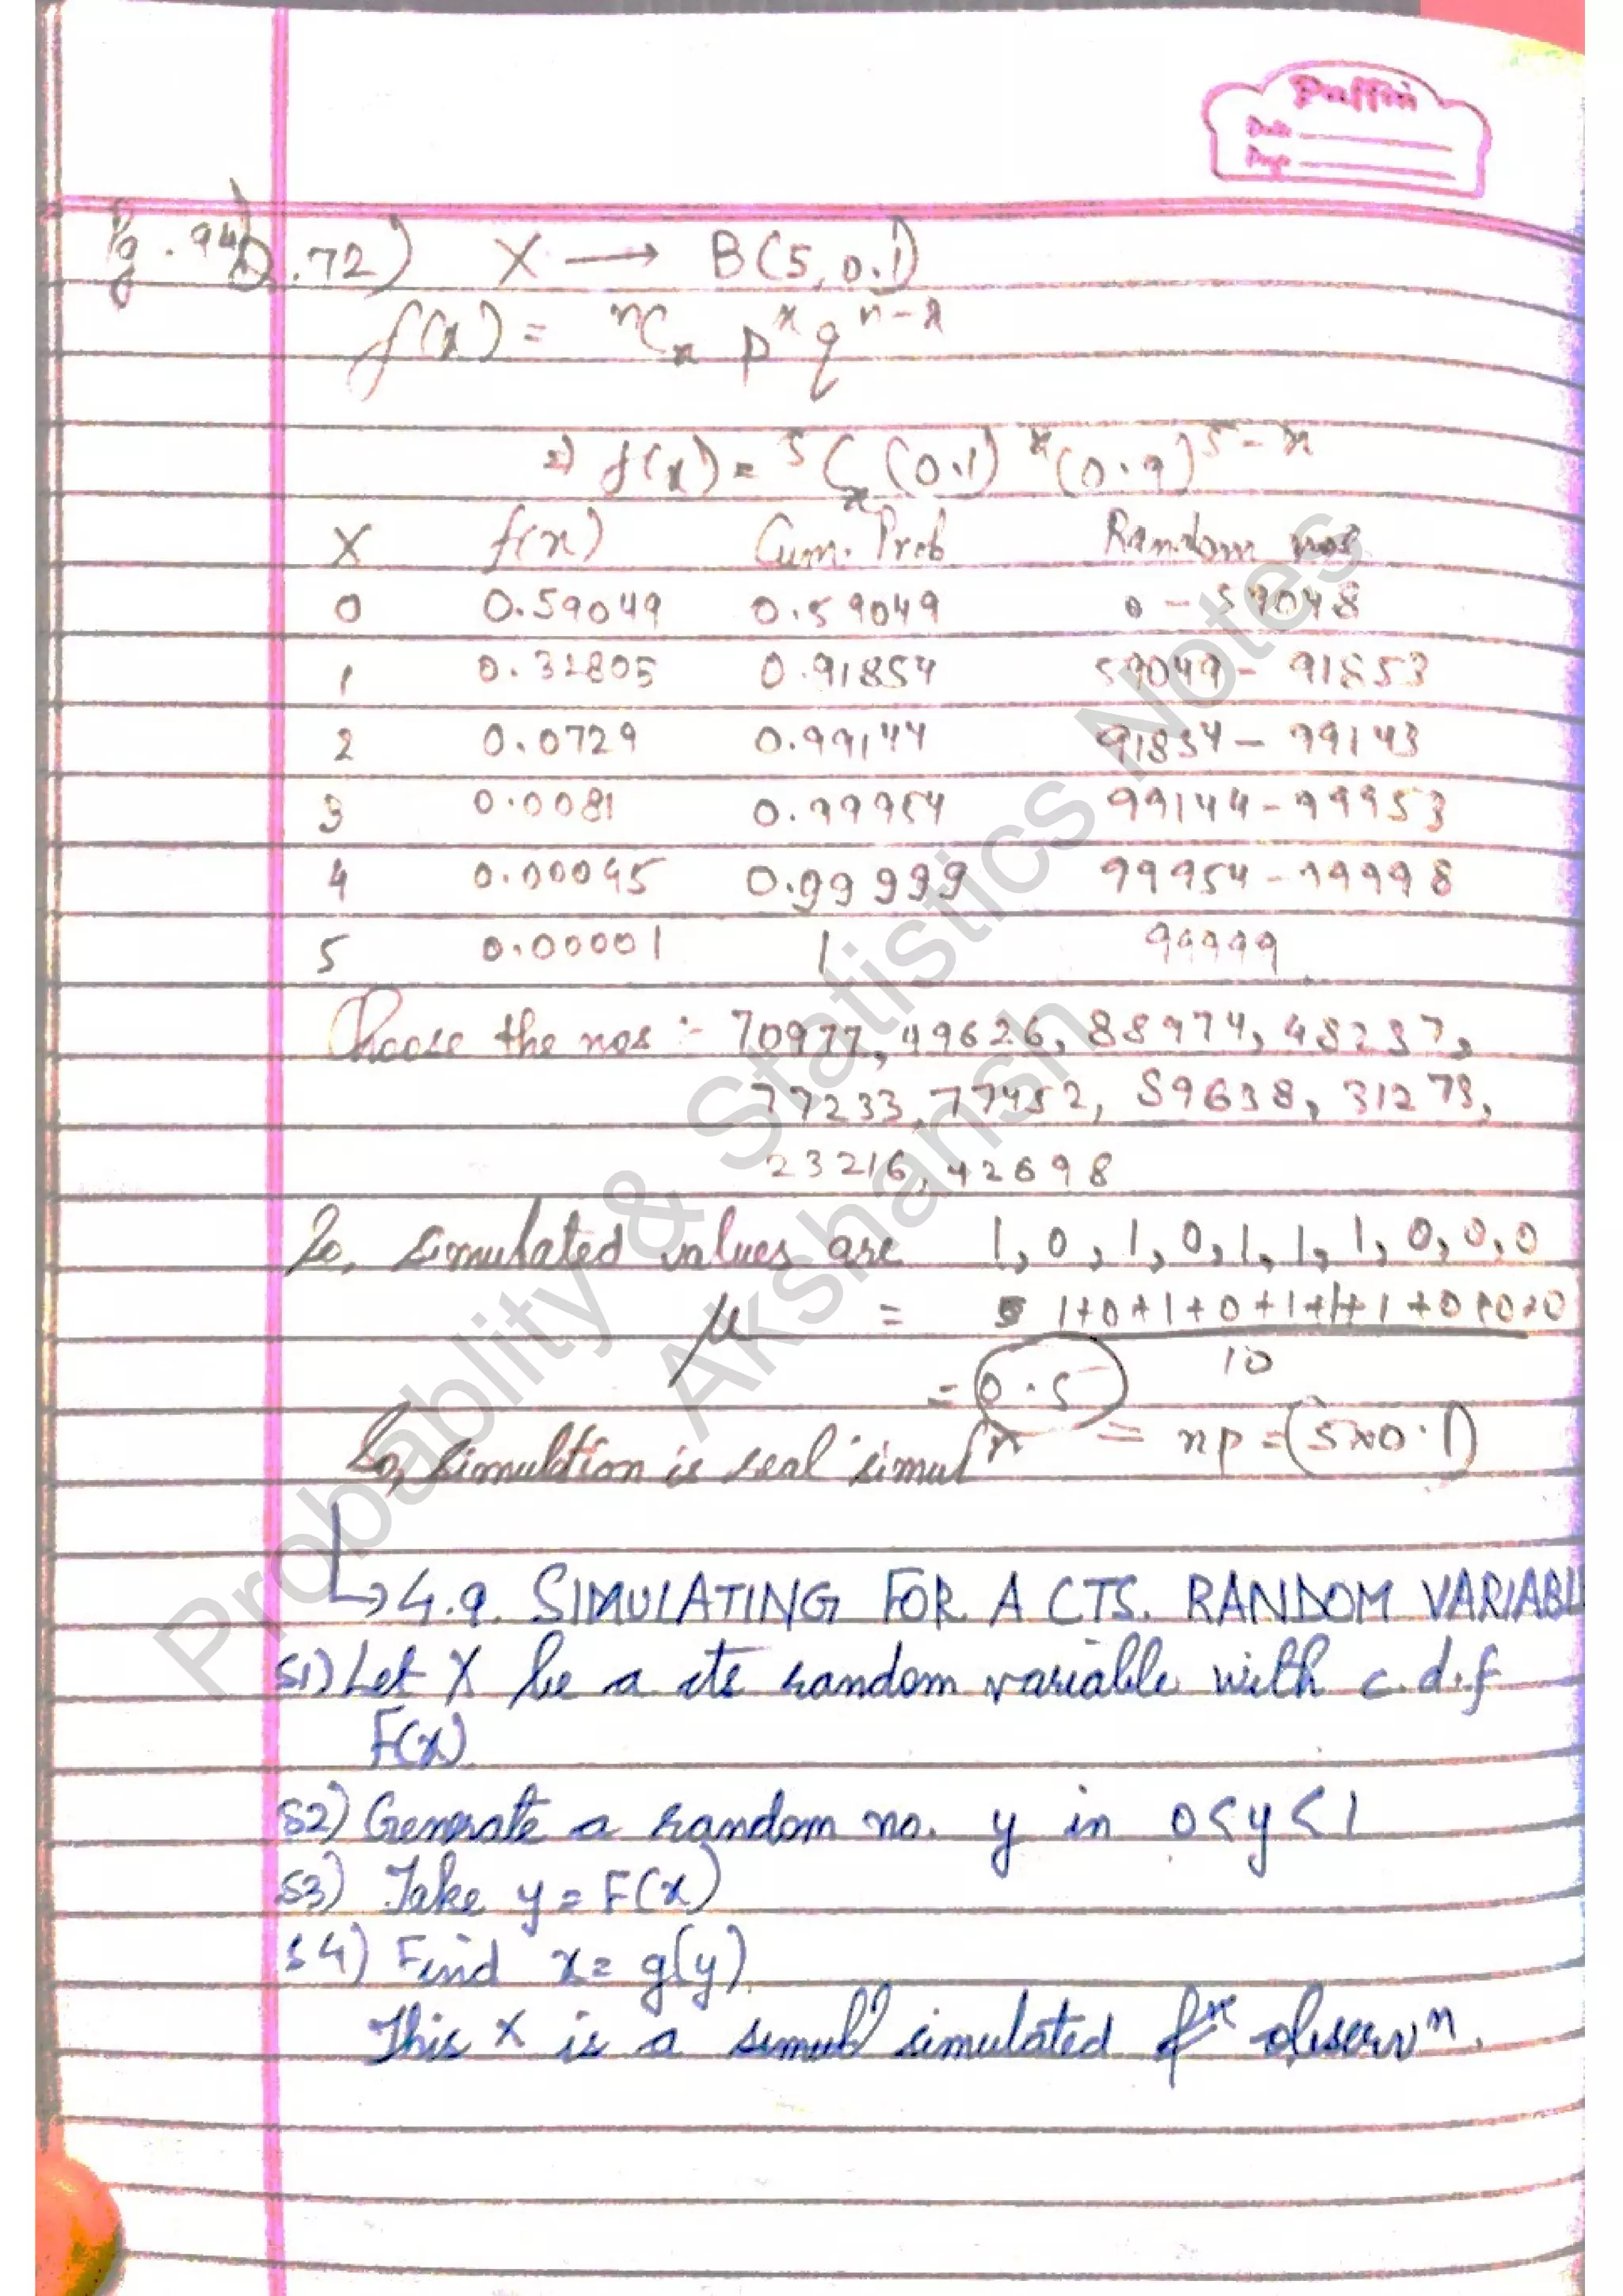 Puffin
Date
Page
Pg. 94) Q.72) X → B(5, 0.1)
f(x) = ⁿCₓ pˣ qⁿ⁻ˣ
⇒ f(x) = ⁵Cₓ (0.1)ˣ (0.9)⁵⁻ˣ
X f(x) Cum. Prob Random nos
0 0.59049 0.59049 0 - 59048
1 0.32805 0.91854 59049 - 91853
2 0.0729 0.99144 91854 - 99143
3 0.0081 0.99954 99144 - 99953
4 0.00045 0.99999 99954 - 99998
5 0.00001 1 99999
Choose the nos :- 70977, 49626, 88974, 48237,
77233, 77452, 59638, 31273,
23216, 42698
So, simulated values are 1, 0, 1, 0, 1, 1, 1, 0, 0, 0
μ = 1+0+1+0+1+1+1+0+0+0
10
= 0.5 = np = (5×0.1)
So, simultion is real simulⁿ
↳ 4.9. SIMULATING FOR A CTS. RANDOM VARIABL
S1) Let X be a cts random variable with c.d.f
F(x)
S2) Generate a random no. y in 0<y<1
S3) Take y = F(x)
S4) Find x = g(y)
This X is a simulated observⁿ.
Probablity & Statistics Notes
Akshansh